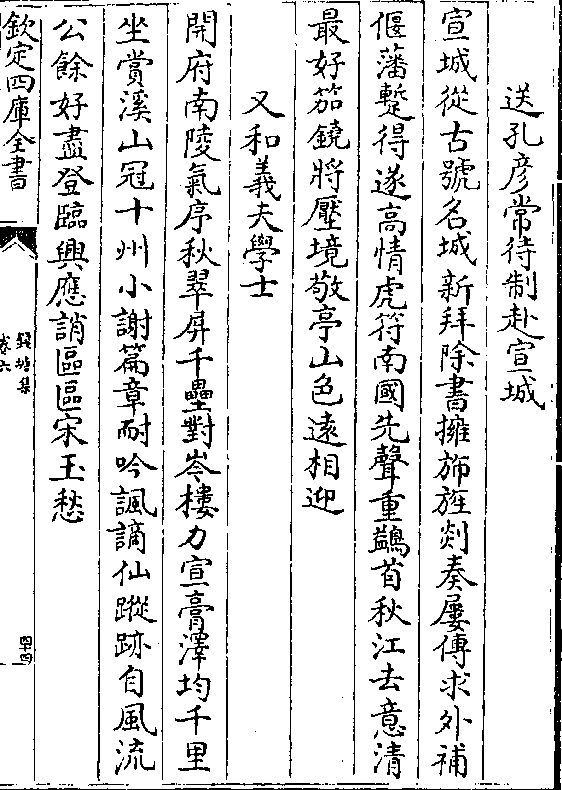 送孔彦常待制赴宣城
宣城從古號名城新拜除書擁斾旌剡奏屢傳求外補
偃藩蹔得遂高情虎符南國先聲重鷁首秋江去意清
最好笳鐃將壓境敬亭山色遠相迎
又和義夫學士
開府南陵氣序秋翠屏千疊對岑樓力宣膏澤均千里
坐賞溪山冠十州小謝篇章耐吟諷謫仙蹤跡自風流
公餘好盡登臨興應誚區區宋玉愁
欽定四庫全書
錢塘集
卷六
四十四